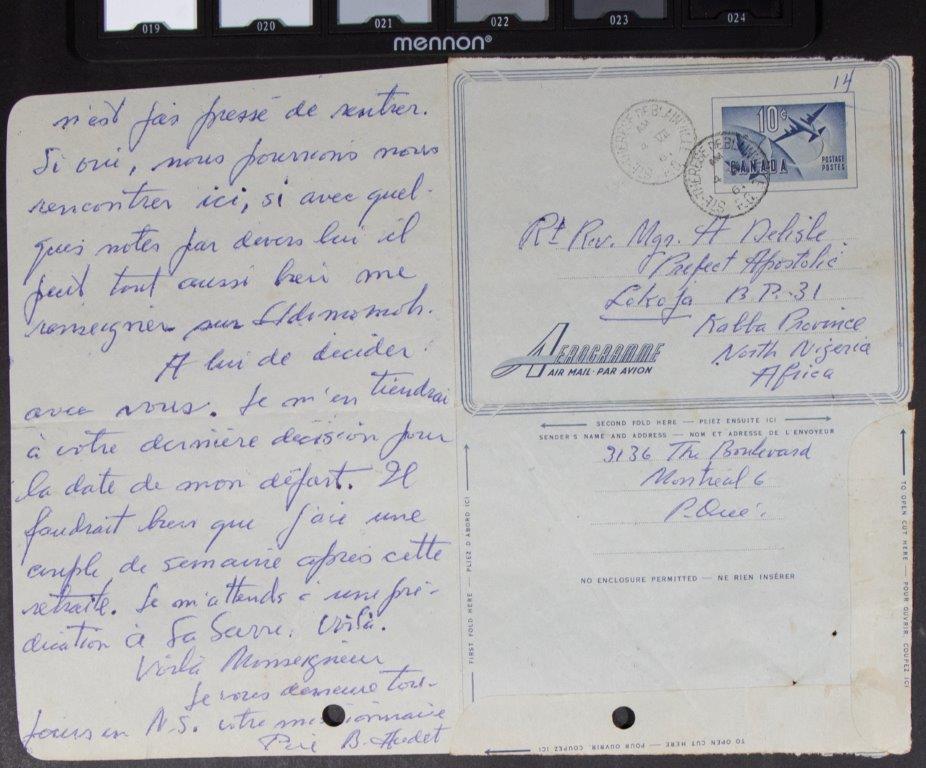 019 020 021 022 023 024
mennon®
n'est pas pressé de rentrer.
Si oui, nous pourrions nous
rencontrer ici, si avec quel-
ques notes par devers lui il
peut tout aussi bien me
renseigner sur
A lui de décider
avec vous. Je m'en tiendrai
à votre dernière décision pour
la date de mon départ. Il
faudrait bien que j'aie une
couple de semaine après cette
retraite. Je m'attends à une pré-
dication à La Sarre. Voilà.
Voilà Monseigneur
Je vous demeure tou-
jours en N.S. votre missionnaire
Père B. Audet
14
10¢
CANADA
POSTAGE
POSTES
STE-THERESE DE BLAINVILLE
AM
STE-THERESE DE BLAINVILLE
AM
P.Q.
Rt Rev. Mgr. A Delisle
Prefect Apostolic
Lokoja B.P. 31
Kabba Province
North Nigeria
Africa
AEROGRAMME
AIR MAIL · PAR AVION
SECOND FOLD HERE — PLIEZ ENSUITE ICI
SENDER'S NAME AND ADDRESS — NOM ET ADRESSE DE L'ENVOYEUR
3136 The Boulevard
Montreal 6
P. Qué.
NO ENCLOSURE PERMITTED — NE RIEN INSÉRER
FIRST FOLD HERE — PLIEZ D'ABORD ICI
TO OPEN CUT HERE — POUR OUVRIR, COUPEZ ICI
TO OPEN CUT HERE — POUR OUVRIR, COUPEZ ICI